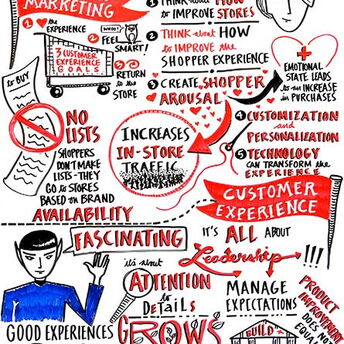 MARKETING
① the EXPERIENCE
② FEEL SMART!
WHOO!
3 CUSTOMER
EXPERIENCE
GOALS
③ RETURN
to the
STORE
to BUY
① THINK about HOW
to IMPROVE STORES
② THINK about HOW
to IMPROVE the
SHOPPER EXPERIENCE
③ CREATE SHOPPER
AROUSAL
EMOTIONAL
STATE LEADS
to an INCREASE
in PURCHASES
④ CUSTOMIZATION
and
PERSONALIZATION
⑤ TECHNOLOGY
CAN TRANSFORM the
EXPERIENCE
NO
LISTS
SHOPPERS
DON'T MAKE
LISTS - THEY
GO to STORES
BASED ON BRAND
AVAILABILITY
INCREASES
IN-STORE
TRAFFIC
CUSTOMER
EXPERIENCE
FASCINATING
IT'S ALL ABOUT
Leadership
!!!
it's about
ATTENTION
to
DETAILS
MANAGE
EXPECTATIONS
PRODUCT
IMPROVEMENT
DOES NOT
EQUAL
GOOD EXPERIENCES
GROWS
BUILD